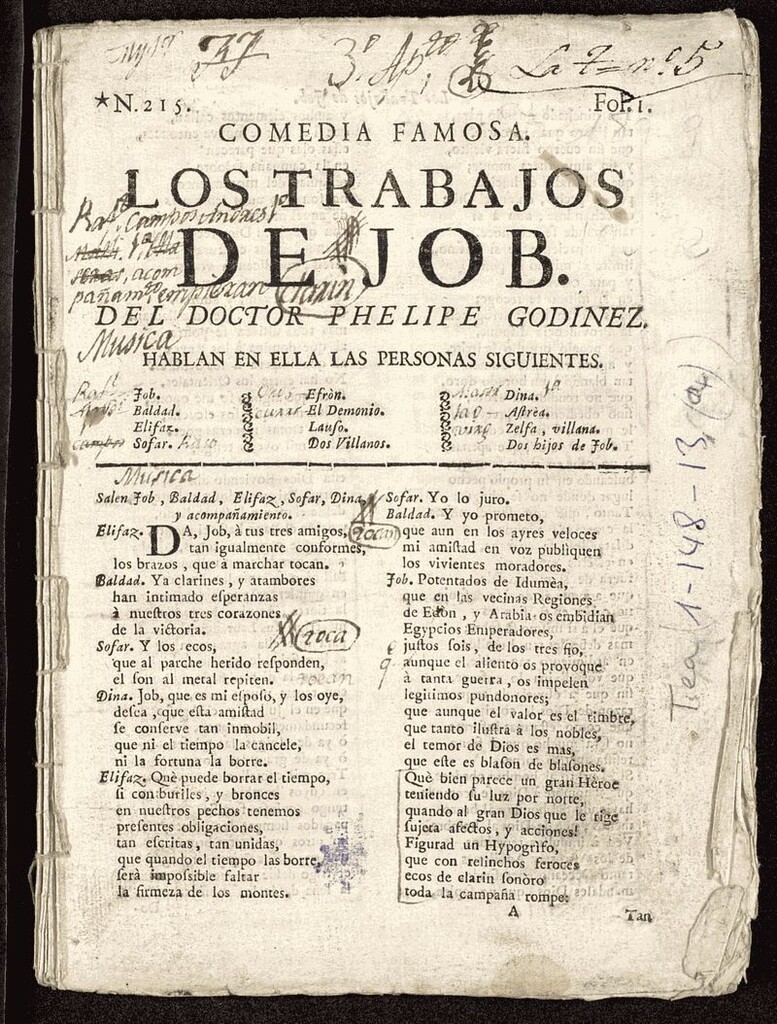 37
3º Apto
La 7= nº 5
★N.215. Fol.1.
COMEDIA FAMOSA.
LOS TRABAJOS
DE JOB.
Clarin
DEL DOCTOR PHELIPE GODINEZ.
Musica
HABLAN EN ELLA LAS PERSONAS SIGUIENTES.
Job. Efròn. Dina.
Baldad. El Demonio. Astrèa.
Elifaz. Lauso. Zelfa, villana.
Sofar. Dos Villanos. Dos hijos de Job.
Musica
Salen Job, Baldad, Elifaz, Sofar, Dina,
y acompañamiento.
Elifaz. DA, Job, à tus tres amigos,
tan igualmente conformes,
los brazos, que à marchar tocan.
Baldad. Ya clarines, y atambores
han intimado esperanzas
à nuestros tres corazones
de la victoria.
toca
Sofar. Y los ecos,
que al parche herido responden,
el son al metal repiten.
Dina. Job, que es mi esposo, y los oye,
desea, que esta amistad
se conserve tan inmobil,
que ni el tiempo la cancele,
ni la fortuna la borre.
Elifaz. Què puede borrar el tiempo,
si con buriles, y bronces
en nuestros pechos tenemos
presentes obligaciones,
tan escritas, tan unidas,
que quando el tiempo las borre,
serà impossible faltar
la firmeza de los montes.
Sofar. Yo lo juro.
Baldad. Y yo prometo,
que aun en los ayres veloces
mi amistad en voz publiquen
los vivientes moradores.
Job. Potentados de Idumèa,
que en las vecinas Regiones
de Edòn, y Arabia os embidian
Egypcios Emperadores,
justos sois, de los tres fio,
aunque el aliento os provoque
à tanta guerra, os impelen
legitimos pundonores;
que aunque el valor es el timbre,
que tanto ilustra à los nobles,
el temor de Dios es mas,
que este es blason de blasones.
Què bien parece un gran Hèroe
teniendo su luz por norte,
quando al gran Dios que le rige
sujeta afectos, y acciones!
Figurad un Hypogrifo,
que con relinchos feroces
ecos de clarin sonòro
toda la campaña rompe:
A Tan
Tea 1-148-13 (a4)